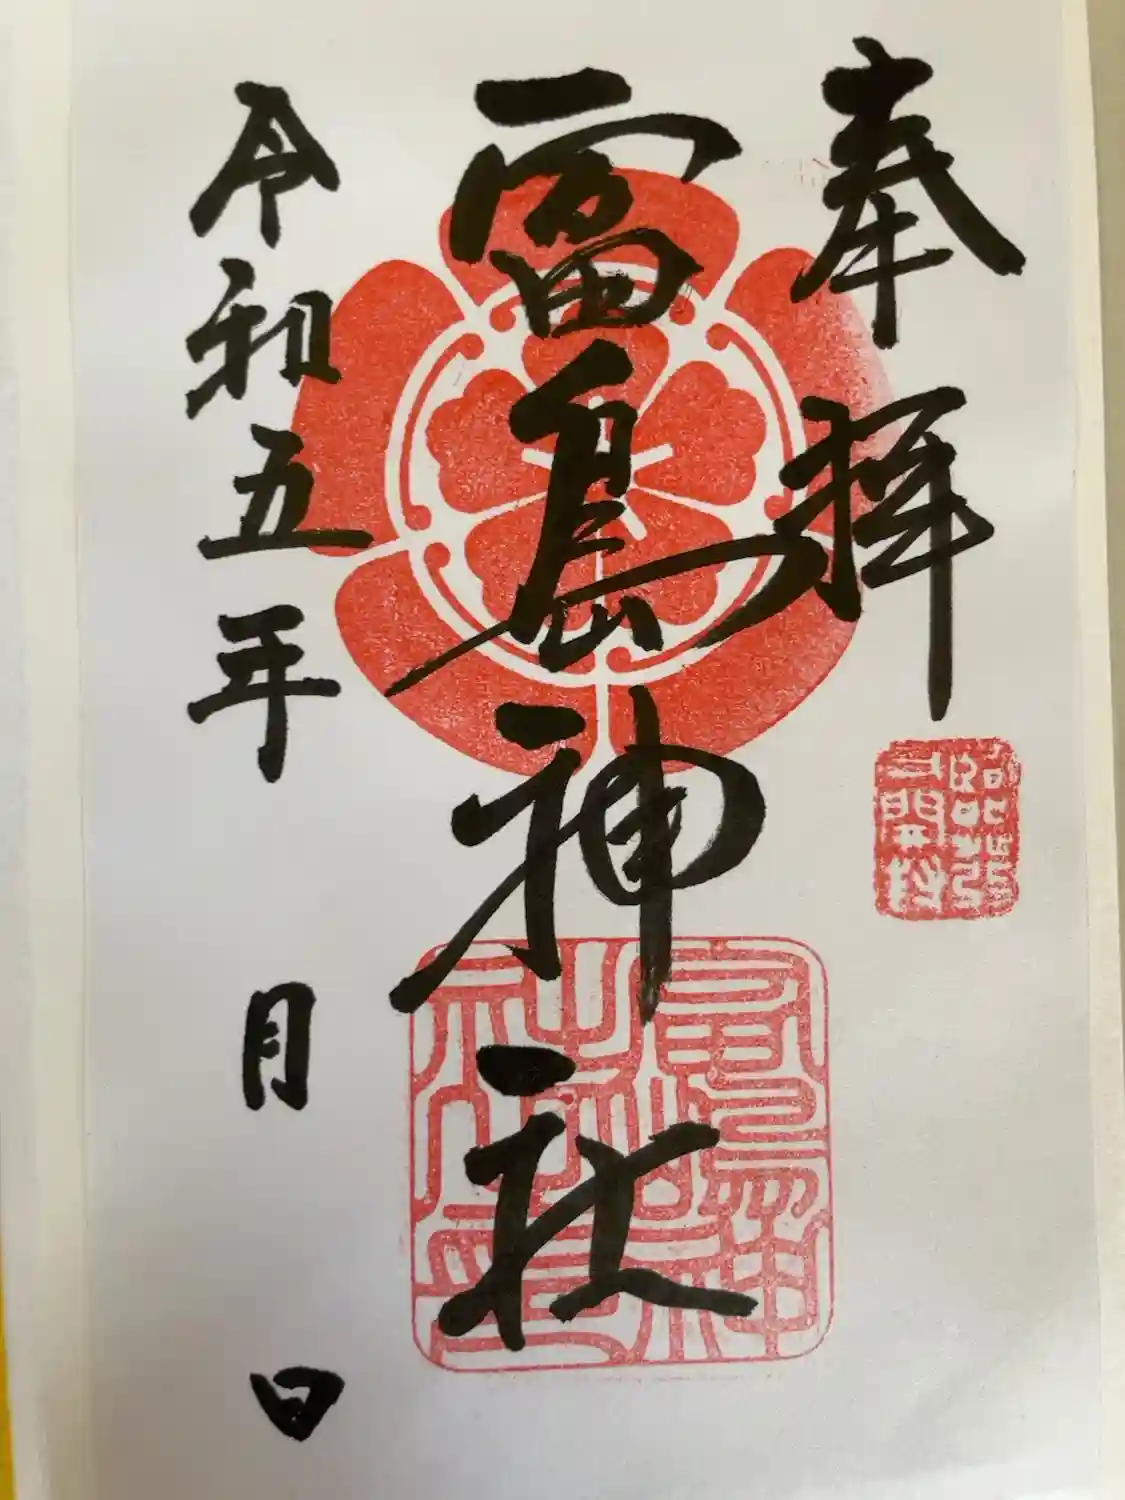 奉拝
富島神社
令和五年　月　日